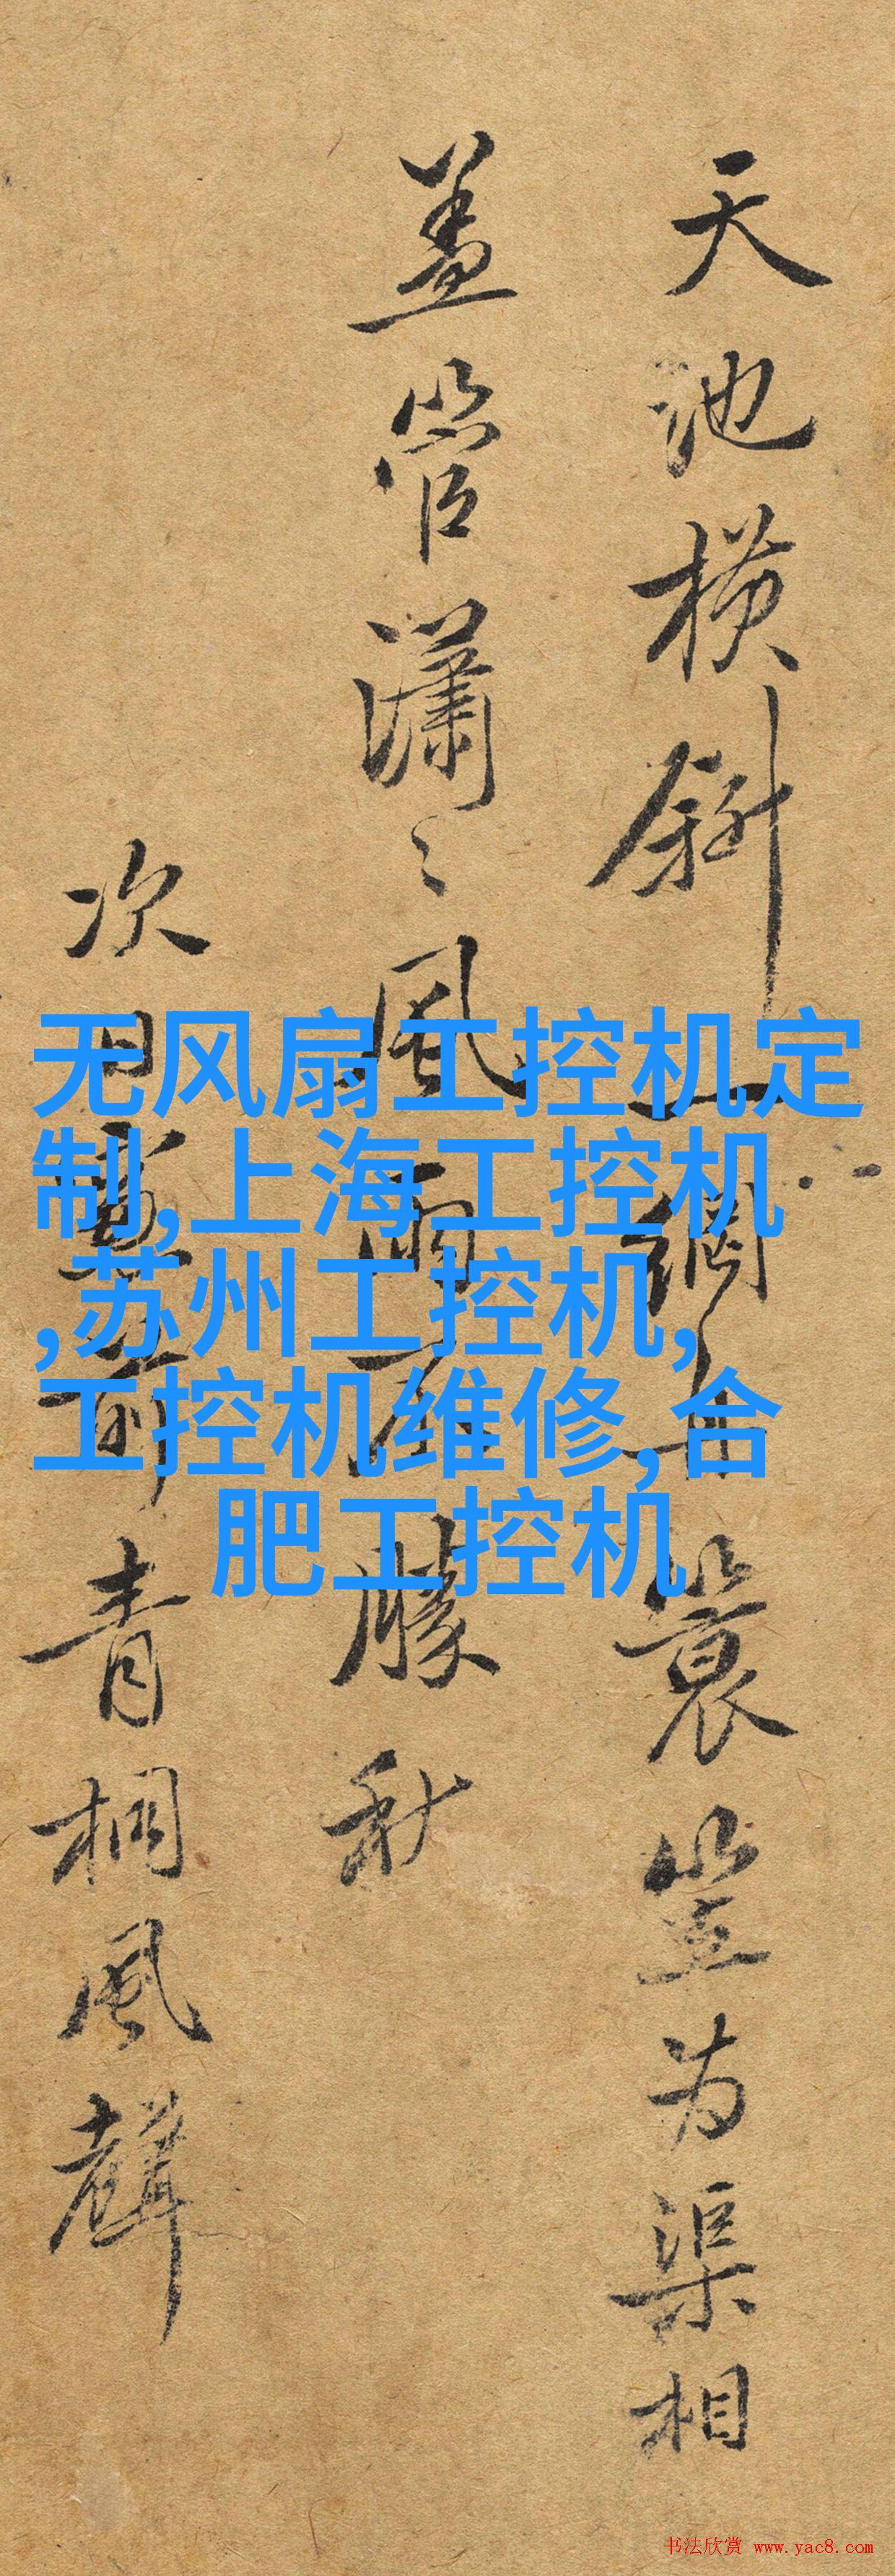 天池横斜一網舟蓑笠为渠相
盖管瀟々風雨不勝秋
次日前青桐風聲
无风扇工控机定
制,上海工控机
,苏州工控机,
工控机维修,合
肥工控机
书法欣赏 www.yac8.com